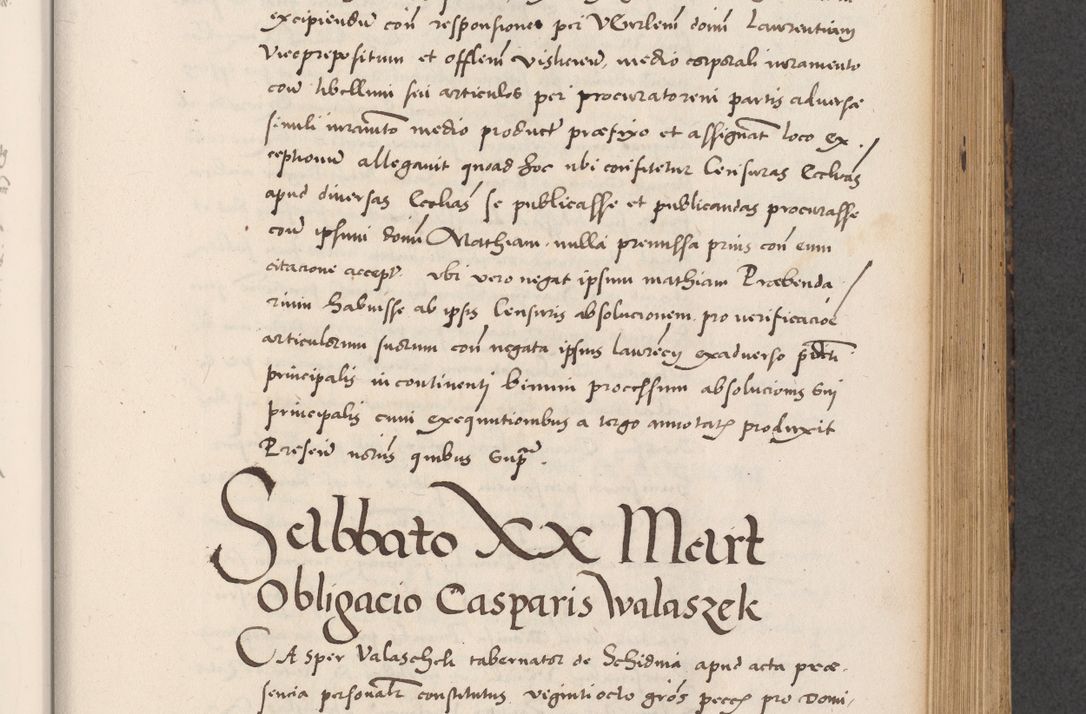 excipiendū coñ responsiones per VGurleñ domĩ Laurentium
Vicepropositum et offleñ Visliceñ, medio corporali iuramento
coñ libellum seu articulos per procuratorem partis adversæ
simili iuramto medio product præfixo et assignat loco ex
ceptionū allegavit quoad hoc ubi confitetur Censuras Ecclias
apud diversas Ecclias se publicasse et publicandas procurasse
coñ ipsum domĩ Mathiam nulla premissa prius coñ eum
citacione accept. Ubi vero negat ipsum mathiam Præbenda
rium habuisse ab ipsis Censuris absolucionem pro verificacioe
articulorum suorum coñ negata ipsius laurēcij exadverso pdcti
principalis in continenti binum processum absolucionis sui
principalis cum exequutionibus a tergo annotatis produxit
Preseñ nōris quibus supra.
Sabbato XX Mart
Obligacio Casparis Walaszek
CAsper Valaschek tabernator de Schidnia apud acta præ,
sencia personalr constitutus viginti octo gros pecc pro domi,